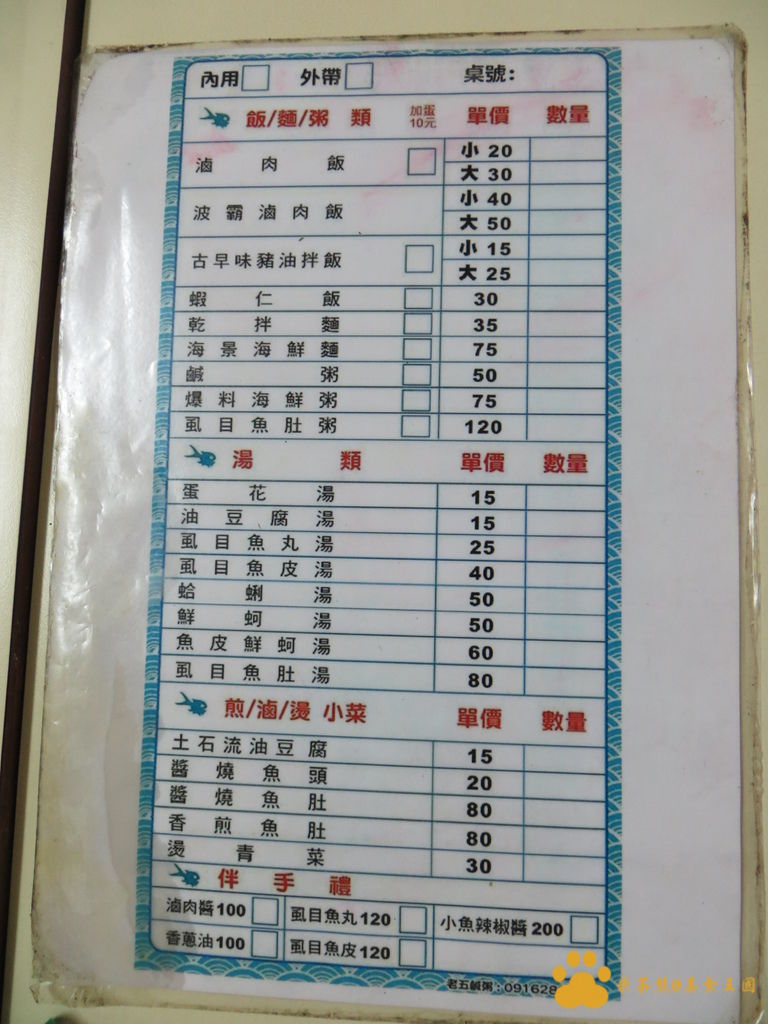 內用 外帶 桌號:
飯/麵/粥 類 加蛋10元 單價 數量
滷肉飯 小 20
大 30
波霸滷肉飯 小 40
大 50
古早味豬油拌飯 小 15
大 25
蝦仁飯 30
乾拌麵 35
海景海鮮麵 75
鹹粥 50
爆料海鮮粥 75
虱目魚肚粥 120
湯類 單價 數量
蛋花湯 15
油豆腐湯 15
虱目魚丸湯 25
虱目魚皮湯 40
蛤蜊湯 50
鮮蚵湯 50
魚皮鮮蚵湯 60
虱目魚肚湯 80
煎/滷/燙 小菜 單價 數量
土石流油豆腐 15
醬燒魚頭 20
醬燒魚肚 80
香煎魚肚 80
燙青菜 30
伴手禮
滷肉醬100 虱目魚丸120 小魚辣椒醬200
香蔥油100 虱目魚皮120
老五鹹粥:091628